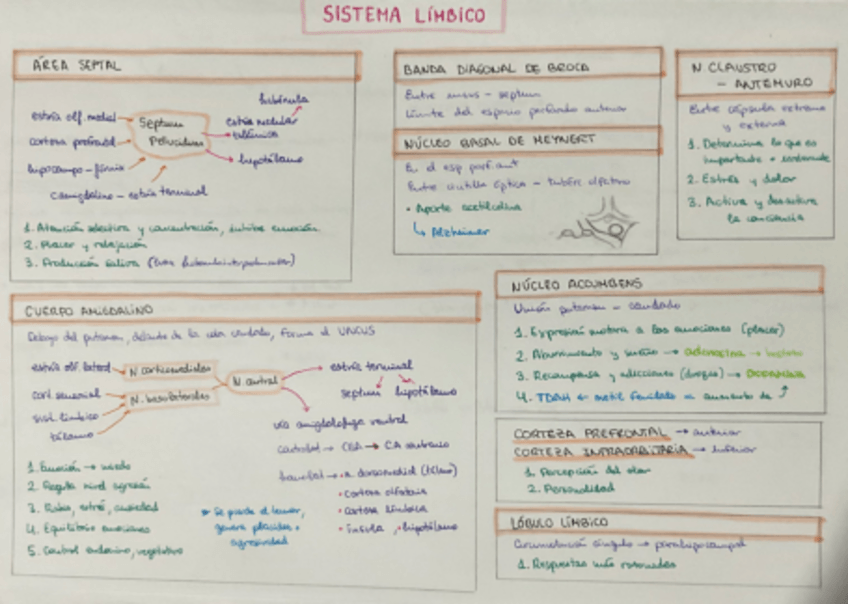 SISTEMA LÍMBICO
ÁREA SEPTAL
estría olf. medial
corteza prefrontal
hipocampo - fórnix
C.amigdalino - estría terminal
Septum
Pelucidum
habénula
estría medular
talámica
hipotálamo
1. Atención selectiva y concentración, inhibe emoción
2. Placer y relajación
3. Producción saliva
BANDA DIAGONAL DE BROCA
Entre uncus - septum
Límite del espacio perforado anterior
NÚCLEO BASAL DE MEYNERT
En el esp perf. ant
Entre cintilla óptica - tubérc olfatorio
• Aporte acetilcolina
↳ Alzheimer
N CLAUSTRO
- ANTEMURO
Entre cápsula extrema
y externa
1. Determina lo que es
importante
2. Estrés y dolor
3. Activa y desactiva
la conciencia
CUERPO AMIGDALINO
Debajo del putamen, delante de la cola caudado, forma el UNCUS
estría olf. lateral
cort. sensorial
sist. límbico
tálamo
N. corticomediales
N. basolaterales
N central
estría terminal
septum hipotálamo
vía amigdalofuga ventral
CA
dorsomedial
• corteza olfatoria
• corteza límbica
• ínsula • hipotálamo
1. Emoción → miedo
2. Regula nivel agresión
3. Rabia, estrés, ansiedad
4. Equilibrio emociones
5. Control endocrino, vegetativo
Se pierde el temor,
genera placidez
agresividad
NÚCLEO ACCUMBENS
Unión putamen - caudado
1. Expresión motora a las emociones (placer)
2. Aburrimiento y sueño → adenosina →
3. Recompensa y adicciones (drogas) → DOPAMINA
4. TDAH ← metilfenidato aumento de
CORTEZA PREFRONTAL → anterior
CORTEZA INFRAORBITARIA → inferior
1. Percepción del olor
2. Personalidad
LÓBULO LÍMBICO
Circunvolución cíngulo → parahipocampal
1. Respuestas más razonadas